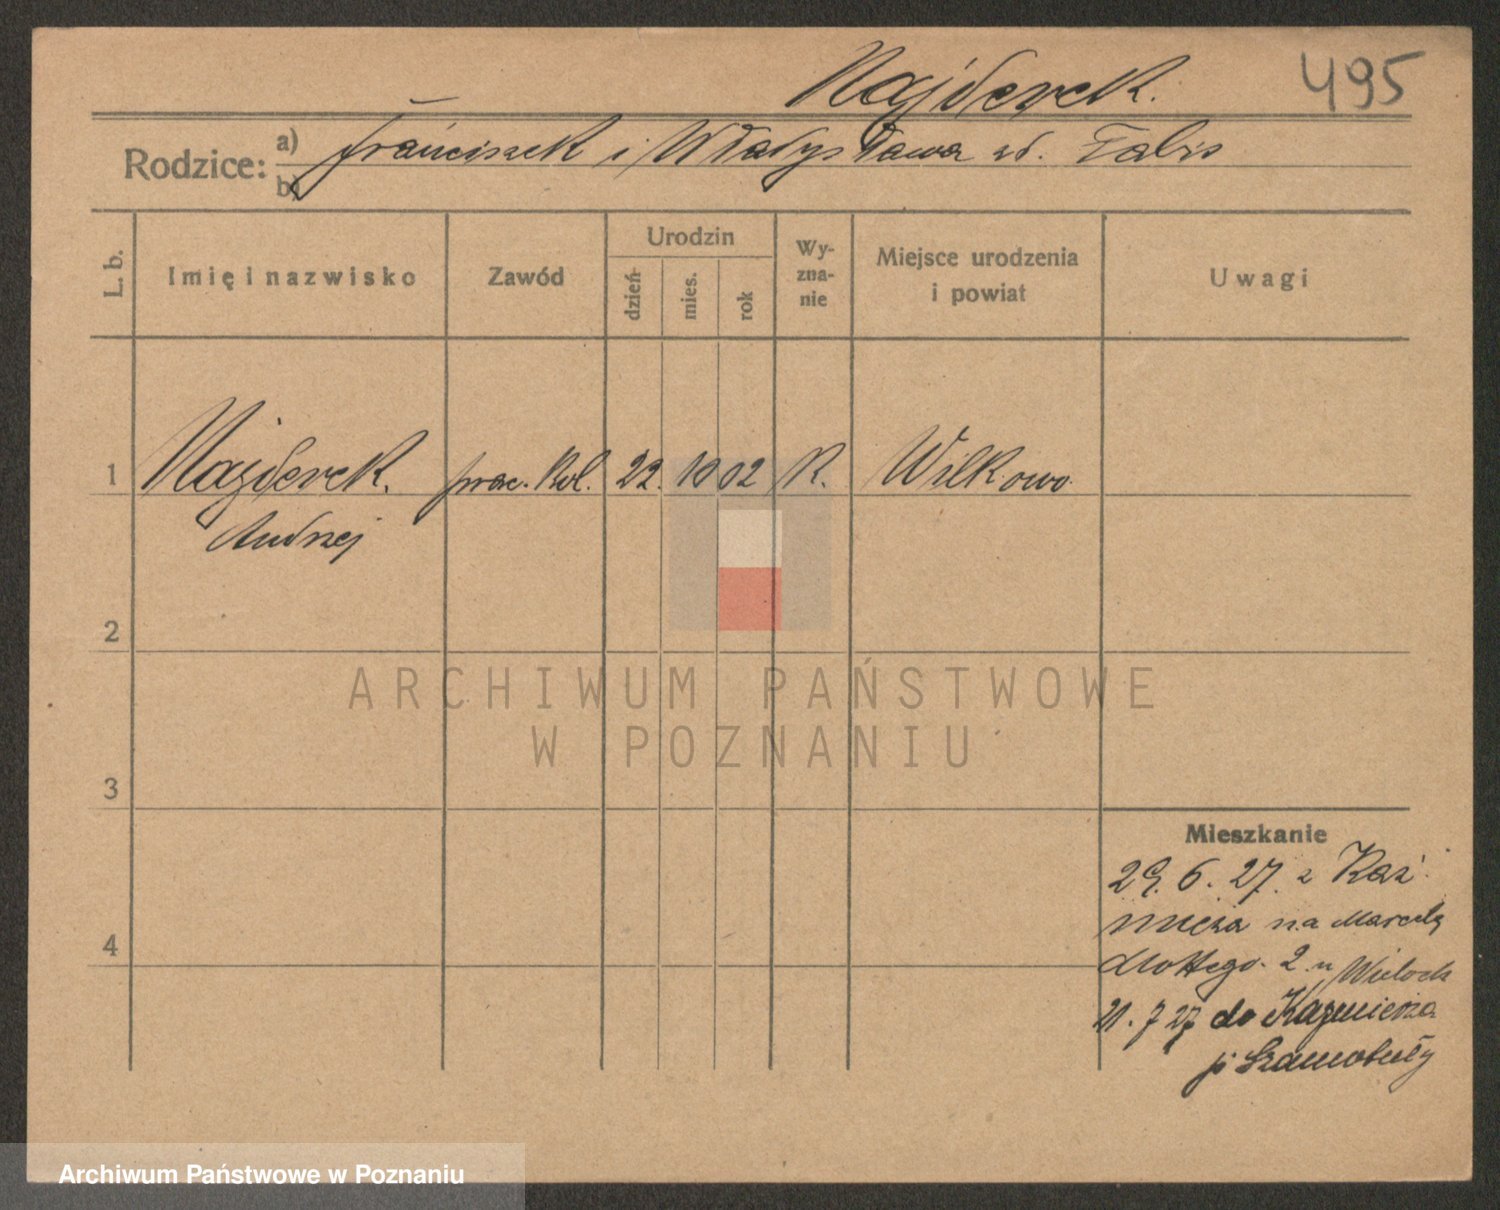 Najderek. 495
Rodzice: a) Franciszek i Władysława zd. Tabis
b)
L. b. Imię i nazwisko Zawód Urodzin dzień mies. rok Wyznanie Miejsce urodzenia i powiat Uwagi
1 Najderek. prac. Kol. 22. 10 02 R. Wilkowo
Andrzej
2
ARCHIWUM PAŃSTWOWE
W POZNANIU
3
Mieszkanie
29. 6. 27. z Kaź
mierza na Marcely
4
2 u
21. 7 27 do Kaźmierza
p Szamotuły
Archiwum Państwowe w Poznaniu